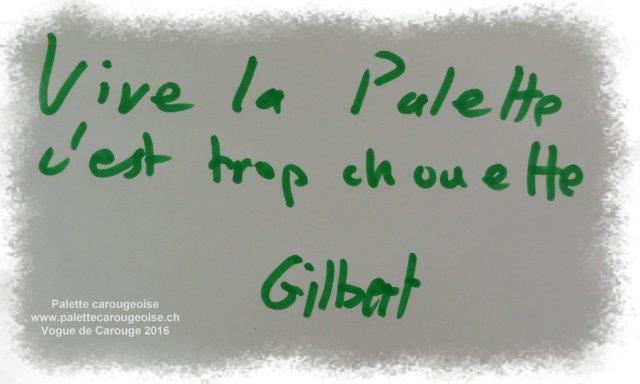 Vive la Palette
c'est trop chouette
Gilbert
Palette carougeoise
www.palettecarougeoise.ch
Vogue de Carouge 2016